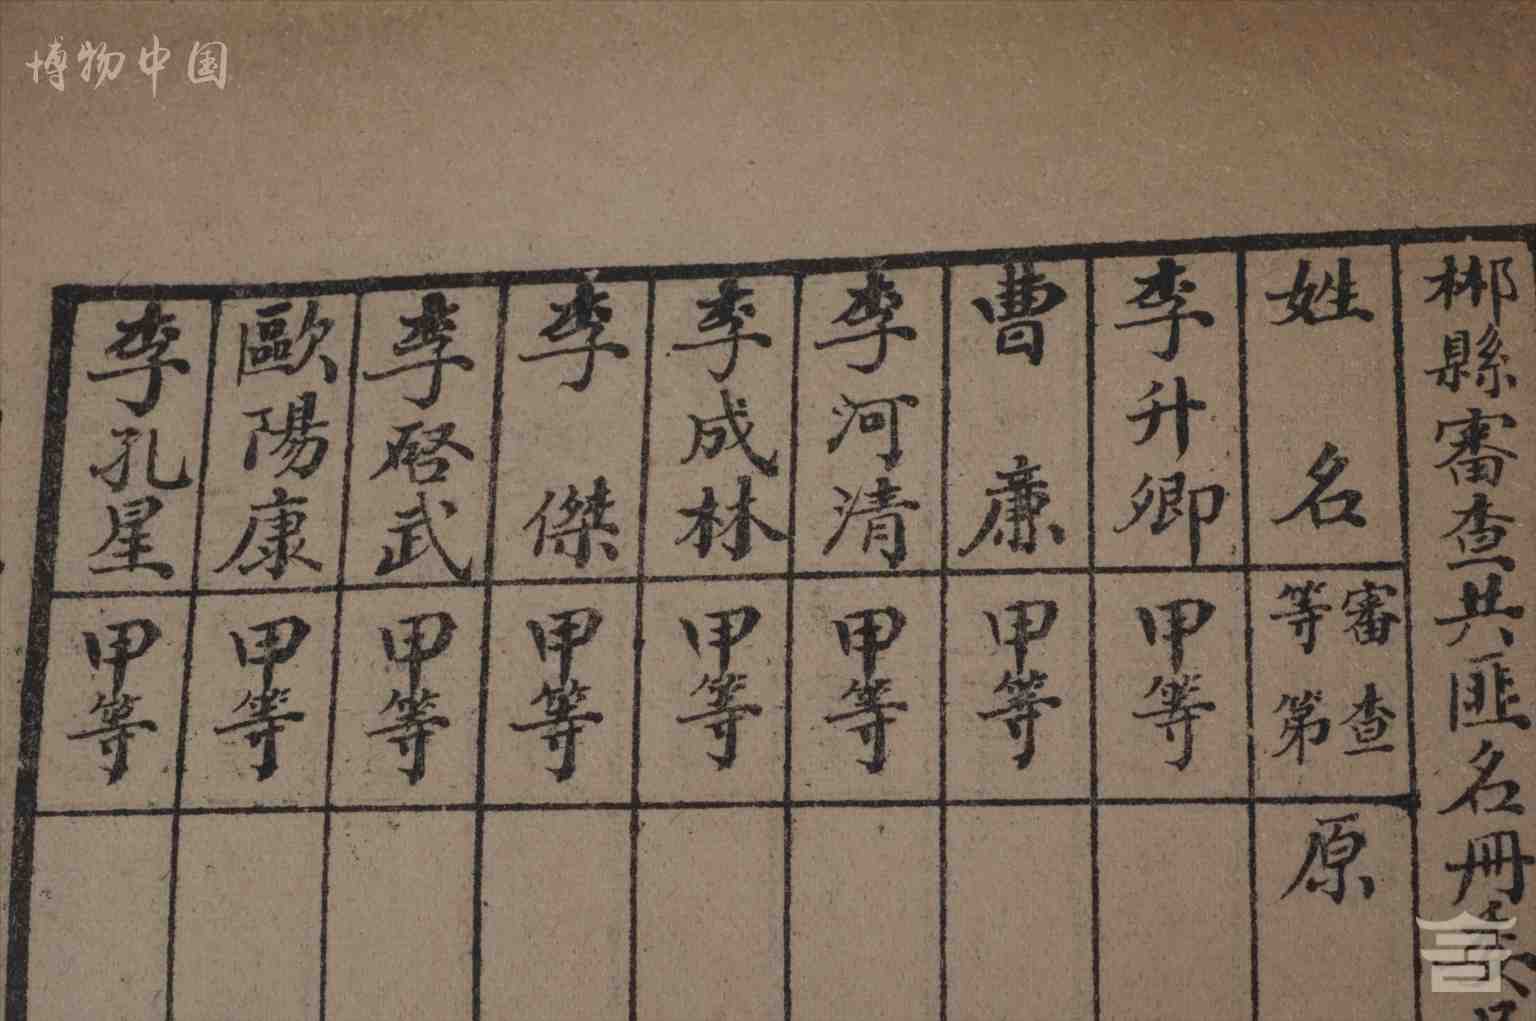 博物中国
郴縣審查共匪名冊
姓名
審查等第
原
李升卿
甲等
曹廉
甲等
李河清
甲等
李成林
甲等
李傑
甲等
李啓武
甲等
歐陽康
甲等
李孔星
甲等